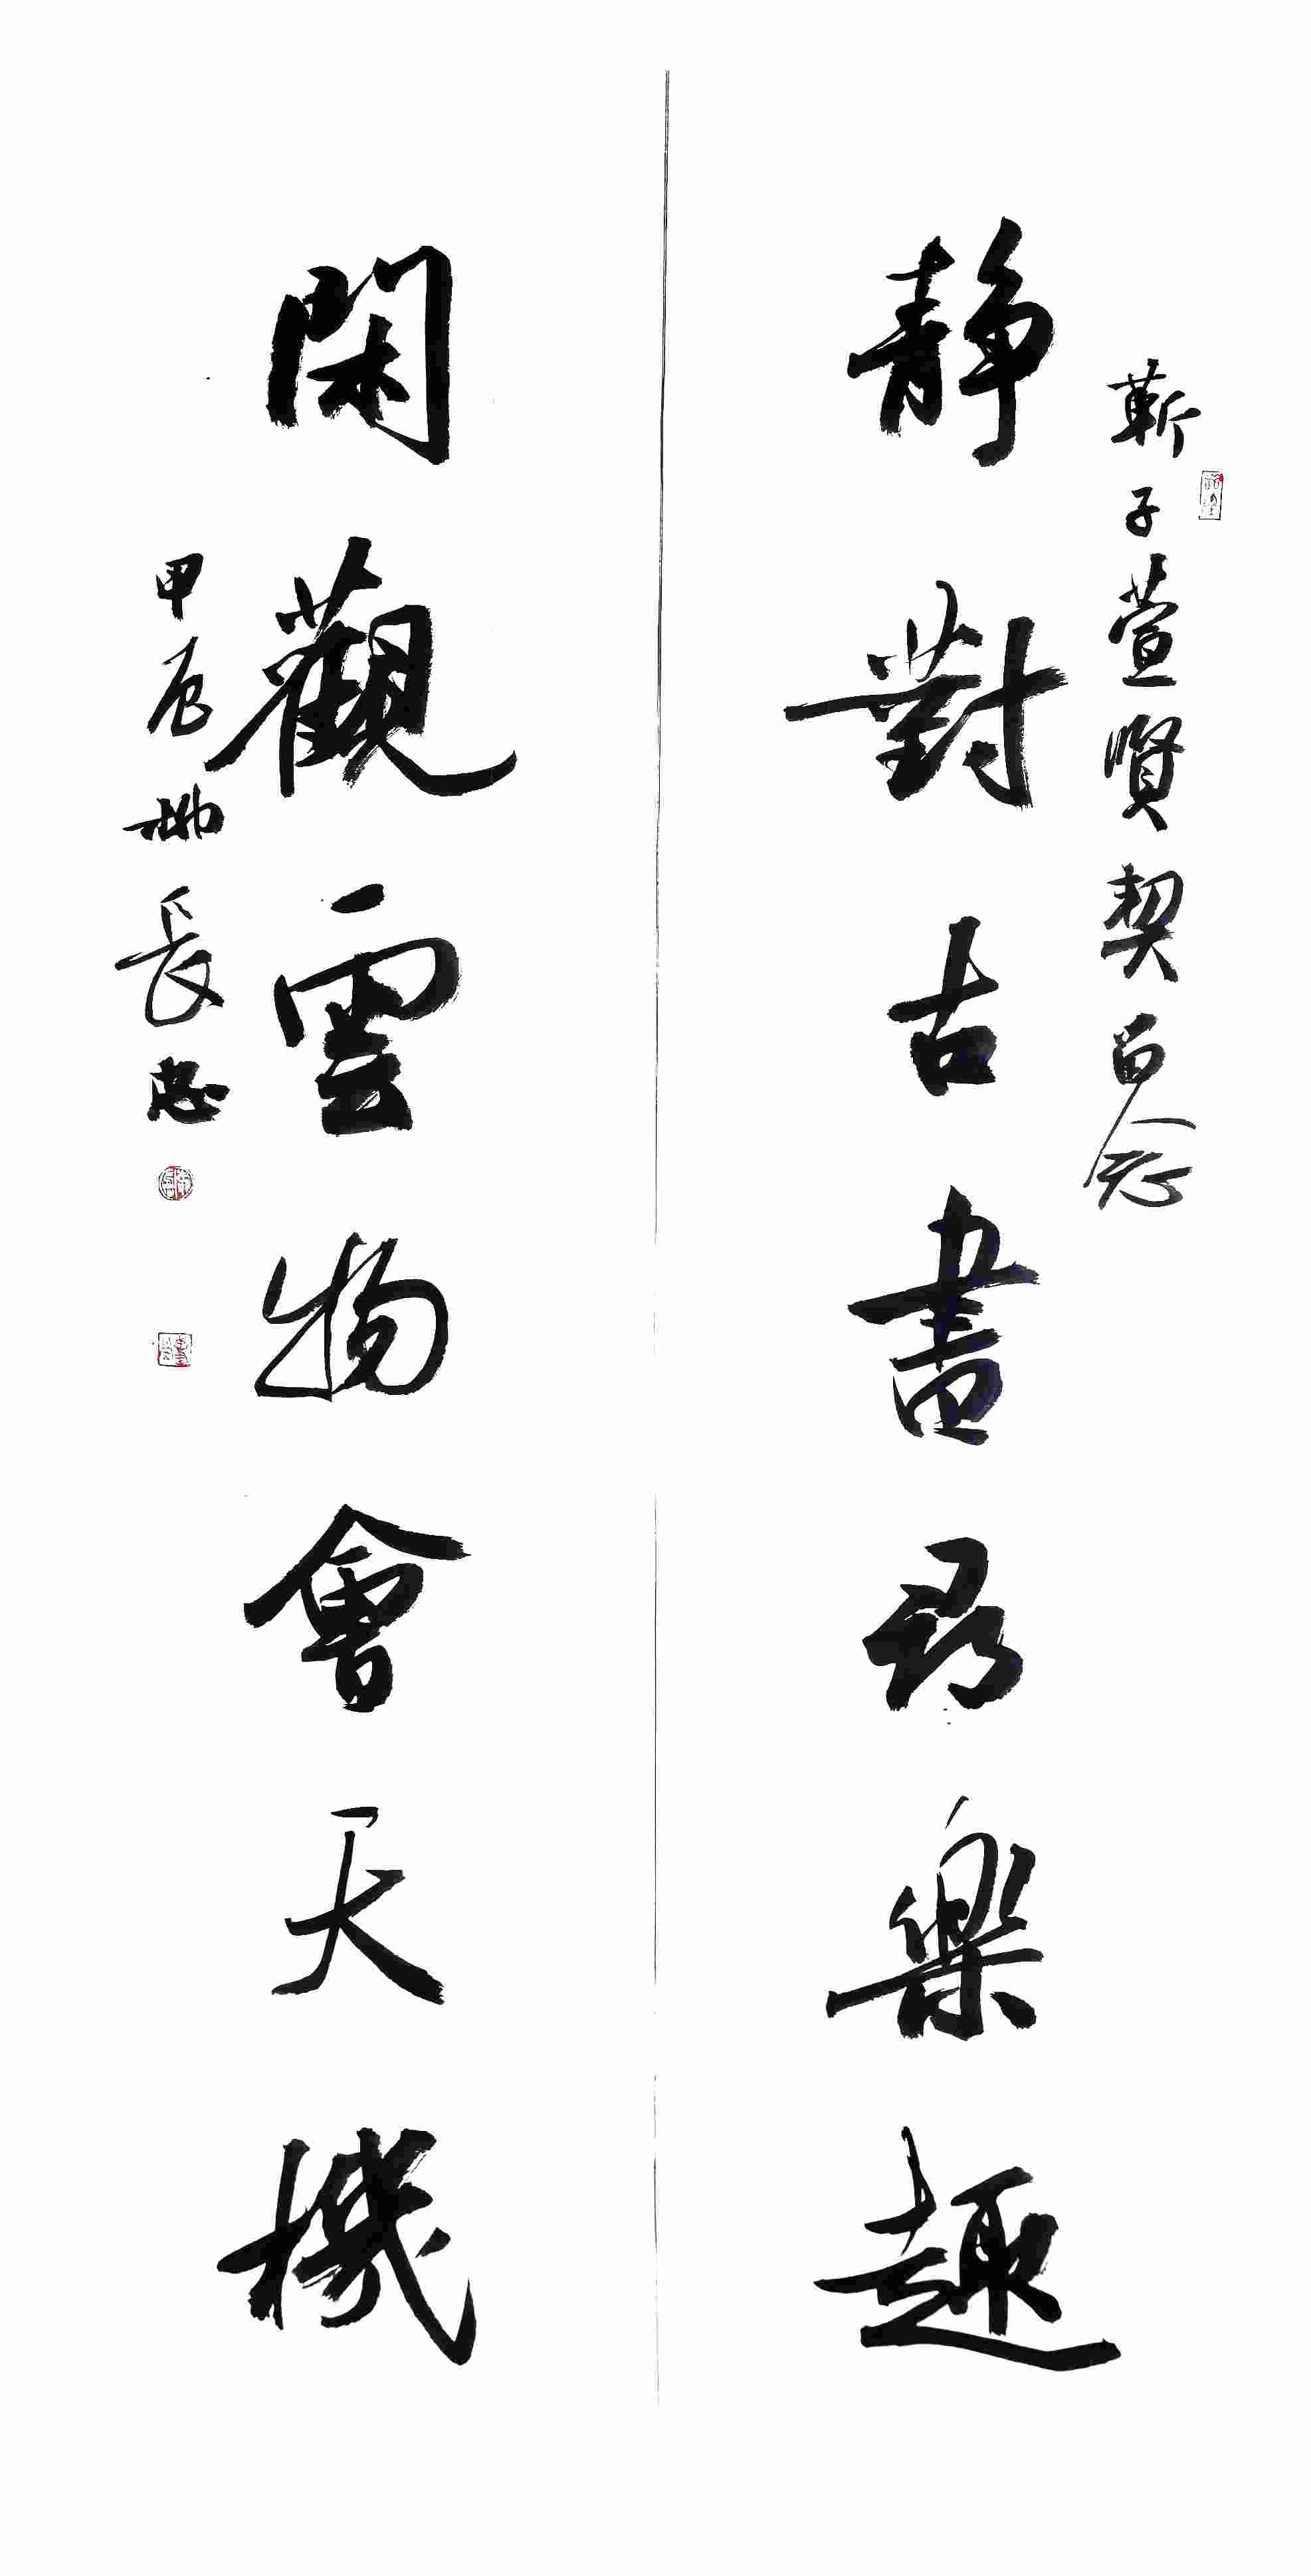 靳子萱賢契留念
静對古書尋樂趣
閑觀雲物會天機
甲辰 長忠